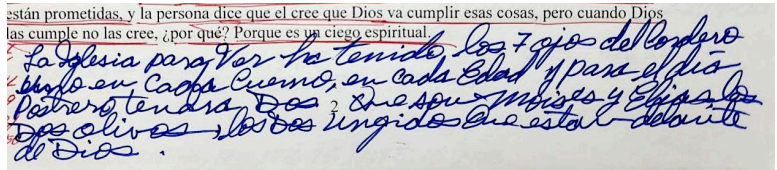 están prometidas, y la persona dice que el cree que Dios va cumplir esas cosas, pero cuando Dios
las cumple no las cree, ¿por qué? Porque es un ciego espiritual.
La Iglesia para Ver ha tenido los 7 ojos del Cordero
uno en Cada Cuerno, en cada Edad y para el día
Postrero tendra Dos 2 que son Moises y Elias, los
Dos olivos, los Dos Ungidos que estan delante
de Dios.